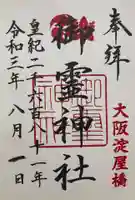 奉拝
大阪淀屋橋
御霊神社
皇紀二千六百八十一年
令和三年八月一日